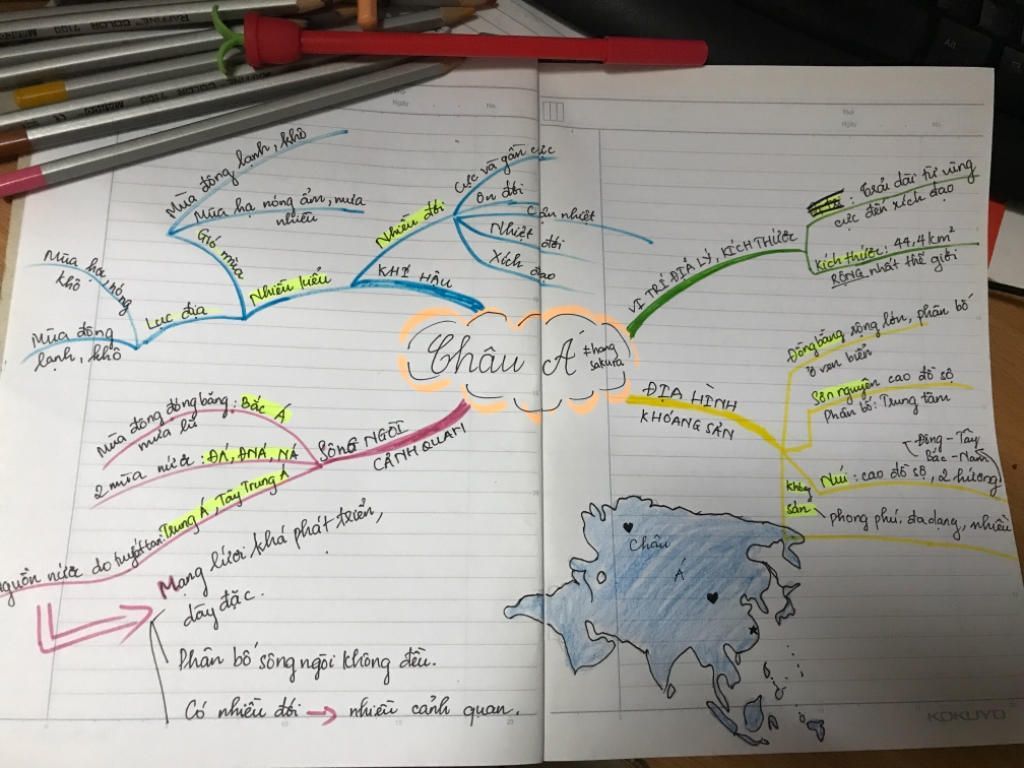 Châu Á
#hang
sakura
VỊ TRÍ ĐỊA LÝ, KÍCH THƯỚC
: trải dài từ vùng
cực đến xích đạo
Kích thước: 44,4 km²
RỘNG nhất thế giới
ĐỊA HÌNH
KHOÁNG SẢN
Đồng bằng rộng lớn, phân bố
ở ven biển
Sơn nguyên cao đồ sộ
Phân bố: Trung tâm
Núi: cao đồ sộ, 2 hướng
Đông - Tây
Bắc - Nam
Khoáng
sản
phong phú, đa dạng, nhiều
KHÍ HẬU
Nhiều đới
Cực và gần cực
Ôn đới
Cận nhiệt
Nhiệt đới
Xích đạo
Nhiều kiểu
Gió mùa
Mùa đông lạnh, khô
Mùa hạ nóng ẩm, mưa
nhiều
Lục địa
Mùa hạ, nóng
khô
Mùa đông
lạnh, khô
SÔNG NGÒI
CẢNH QUAN
Mùa đông đóng băng: Bắc Á
mưa lũ
2 mùa nước: ĐÁ, ĐNÁ, NÁ
nguồn nước do tuyết tan: Trung Á, Tây Trung Á
Mạng lưới khá phát triển,
dày đặc.
Phân bố sông ngòi không đều.
Có nhiều đới → nhiều cảnh quan.
Châu
Á
KOKUYO